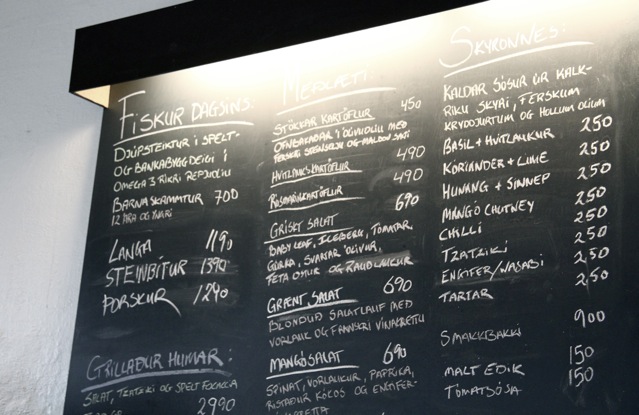 FISKUR DAGSINS:
DJÚPSTEIKTUR Í SPELT-
OG BANKABYGGDEIGI Í
OMEGA 3 RÍKRI REPJUOLÍU
BARNASKAMMTUR 700
12 ÁRA OG YNGRI
LANGA 1190
STEINBÍTUR 1390
ÞORSKUR 1240
GRILLAÐUR HUMAR:
SALAT, TZATZIKI OG SPELT FOCACCIA
2990
MEÐLÆTI:
STÖKKAR KARTÖFLUR 450
OFNBAKAÐAR Í ÓLÍVUOLÍU MEÐ
FERSKRI STEINSELJU OG MALDON SALTI
HVÍTLAUKSKARTÖFLUR 490
RÓSMARÍNKARTÖFLUR 490
GRÍSKT SALAT 690
BABY LEAF, ICEBERG, TÓMATAR,
GÚRKA, SVARTAR ÓLÍVUR,
FETA OSTUR OG RAUÐLAUKUR
GRÆNT SALAT 690
BLÖNDUÐ SALATLAUF MEÐ
VORLAUK OG FRANSKRI VINAIGRETTU
MANGÓSALAT 690
SPÍNAT, VORLAUKUR, PAPRIKA,
RISTAÐUR KÓKOS OG ENGIFER-
SKYRONNES:
KALDAR SÓSUR ÚR KALK-
RÍKU SKYRI, FERSKUM
KRYDDJURTUM OG HOLLUM OLÍUM
BASIL + HVÍTLAUKUR 250
KORIANDER + LIME 250
HUNANG + SINNEP 250
MANGÓ CHUTNEY 250
CHILLI 250
TZATZIKI 250
ENGIFER/WASABI 250
TARTAR 250
SMAKKBAKKI 900
MALT EDIK 150
TÓMATSÓSA 150